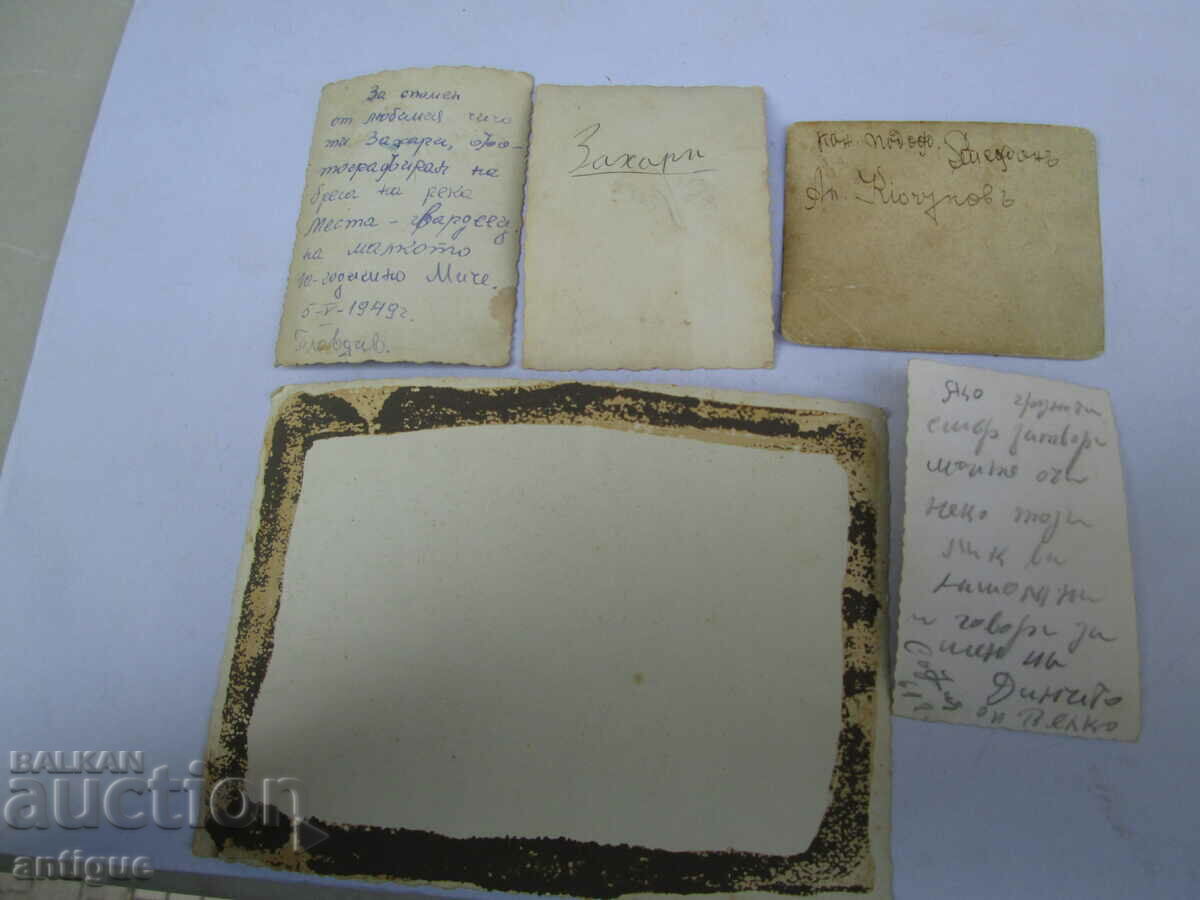 За спомен
от любимия чичо
ти Захари, Фо-
тографиран на
брега на река
Места - гвардеец.
на малкото
10-годишно Миче.
5-V-1949г.
Пловдив.
Захари
кан. подоф. Стефанъ
Ап. Кючуковъ
гроб
затвори
моите очи
неко този
лик ви
напомни
и говори за
мен на
Динчето
от Велко
BALKAN
auction
antique